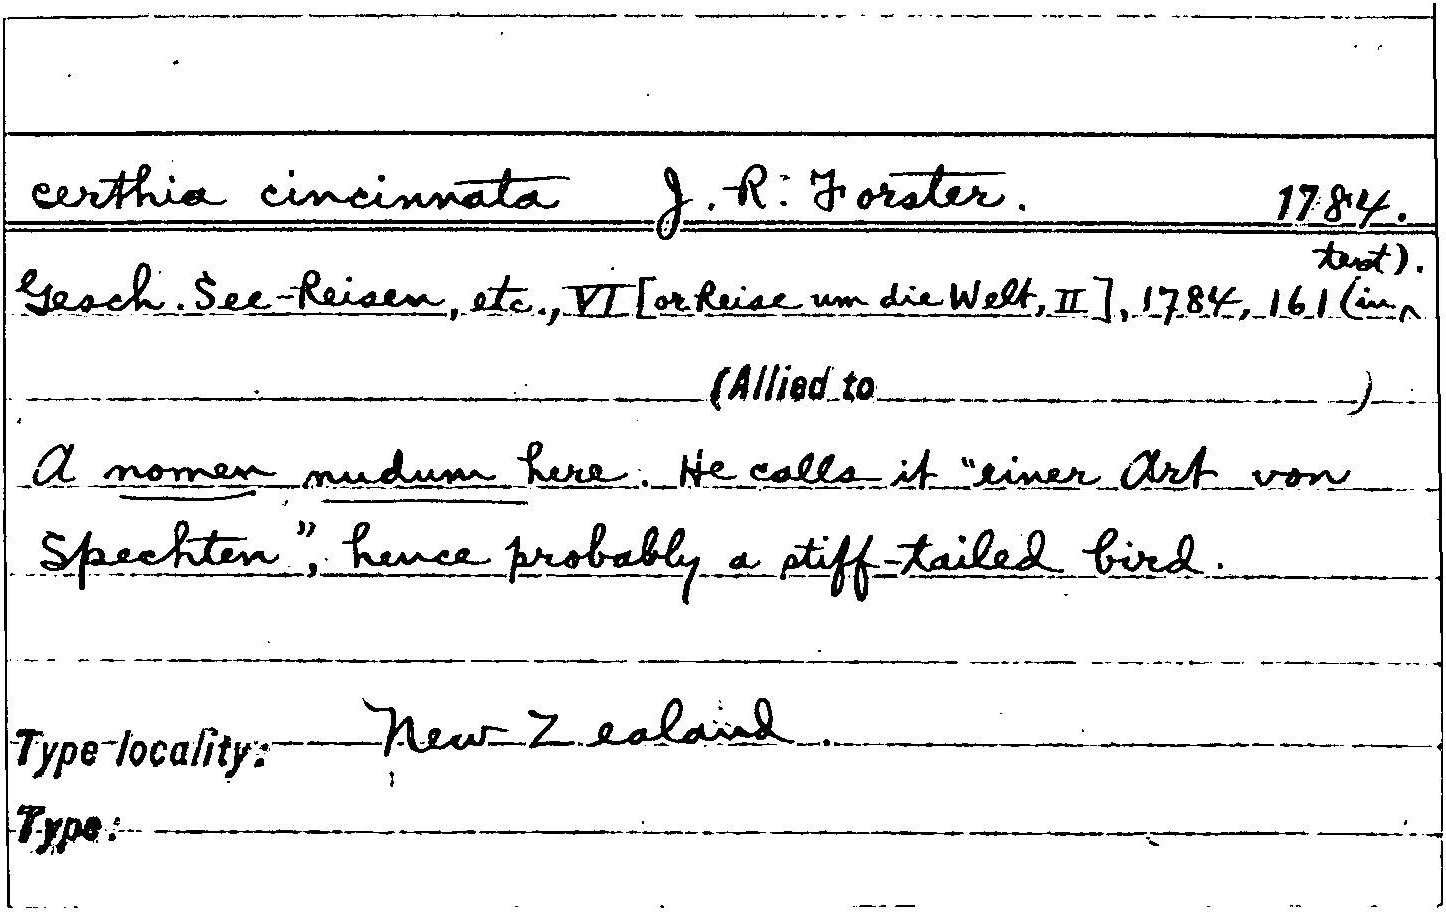 certhia cincinnata J. R. Forster. 1784.
Gesch. See-Reisen, etc., VI [or Reise um die Welt, II], 1784, 161 (in text).
(Allied to )
A nomen nudum here. He calls it "einer Art von
Spechten", hence probably a stiff-tailed bird.
Type locality: New Zealand.
Type: